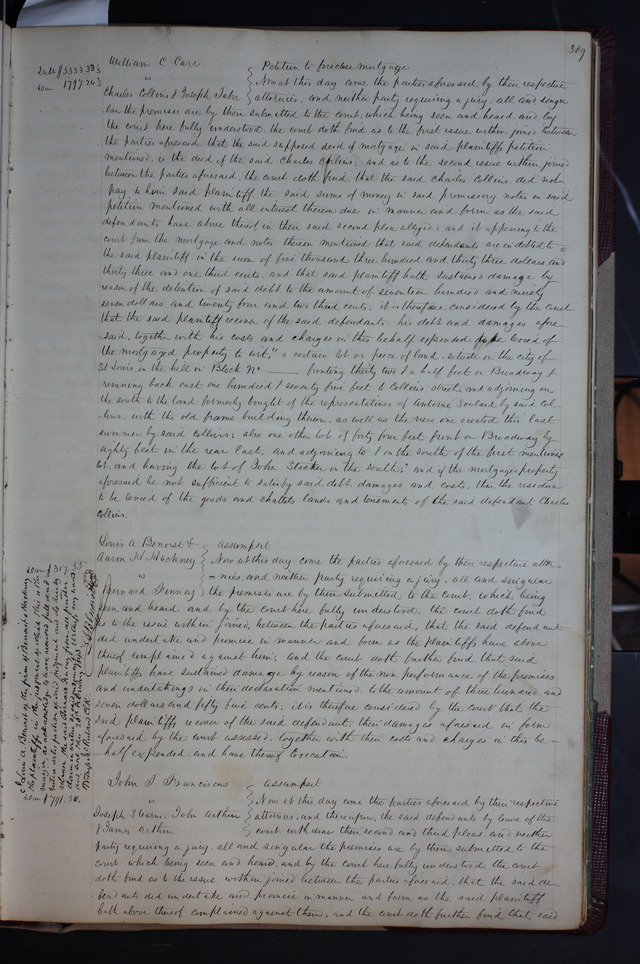 369
William C Carr } Petition to foreclose mortgage
Debt $5333.33⅓
Dam 1797.24⅔
" } Now at this day come the parties aforesaid by their respective
Charles Collins & Joseph Tabor } attornies, and neither party requiring a jury, all and singu
lar the premises are by them submitted to the court, which being seen and heard and by
the court here fully understood, the court doth find as to the first issue within joined between
the parties aforesaid, that the said supposed deed of mortgage in said plaintiffs petition
mentioned, is the deed of the said Charles Collins; and as to the second issue within joined
between the parties aforesaid, the court doth find that the said Charles Collins, did not
pay to him said plaintiff the said sums of money in said promissory notes in said
petition mentioned with all interest thereon due in manner and form as the said
defendants have above thereof in their said second plea alleged; and it appearing to the
court from the mortgage and notes therein mentioned that said defendants are indebted to
the said plaintiff in the sum of five thousand three hundred and thirty three dollars and
thirty three and one third cents, and that said plaintiff hath sustained damage by
reason of the detention of said debt to the amount of seventeen hundred and ninety
seven dollars and twenty four and two third cents; it is therefore considered by the court
that the said plaintiff recover of the said defendants, his debt and damages afore
said, together with his costs and charges in this behalf expended, to be levied of
the mortgaged property to wit, "a certain lot or piece of land, situate in the city of
St Louis, on the hill in Block No — fronting thirty two & a half feet on Broadway &
running back east one hundred & seventy five feet to Collins street, and adjoining on
the south to the land formerly bought of the representatives of Antoine Soulard by said Col-
lins, with the old frame building thereon, as well as the new one erected this last
summer by said Collins; also one other lot of forty four feet front on Broadway by
eighty feet in the rear East, and adjoining to & on the south of the first mentioned
lot, and having the lot of John on the south;" and if the mortgage property
aforesaid be not sufficient to satisfy said debt, damages and costs, then the residue
to be levied of the goods and chattels lands and tenements of the said defendant Charles
Collins.
Louis A Benoist & } assumpsit
Dam $307.55
Aaron W Hackney } Now at this day come the parties aforesaid by their respective attor-
" } nies, and neither party requiring a jury, all and singular
Bernard Finney } the premises are by them submitted to the court, which being
seen and heard and by the court here fully understood, the court doth find
as to the issue within joined, between the parties aforesaid, that the said defend ant
did undertake and promise in manner and form as the plaintiffs have above
thereof complained against him; and the court doth further find that said
plaintiffs have sustained damage by reason of the non performance of the promises
and undertakings in their declaration mentioned, to the amount of three hundred and
seven dollars and fifty five cents; it is therefore considered by the court that the
said plaintiffs recover of the said defendant, their damages aforesaid in form
aforesaid by the court assessed, together with their costs and charges in this be-
half expended, and have thereof Execution.
John D Franciscus } assumpsit
Dam $791.50.
" } Now at this day come the parties aforesaid by their respective
Joseph Stearn, John Arthur } attornies, and thereupon, the said defendants by leave of the
& James Arthur } court withdraw their second and third pleas, and neither
party requiring a jury, all and singular the premises are by them submitted to the
court, which being seen and heard, and by the court here fully understood, the court
doth find as to the issue within joined between the parties aforesaid, that the said de-
fendants did undertake and promise in manner and form as the said plaintiff
hath above thereof complained against them; and the court doth further find that said